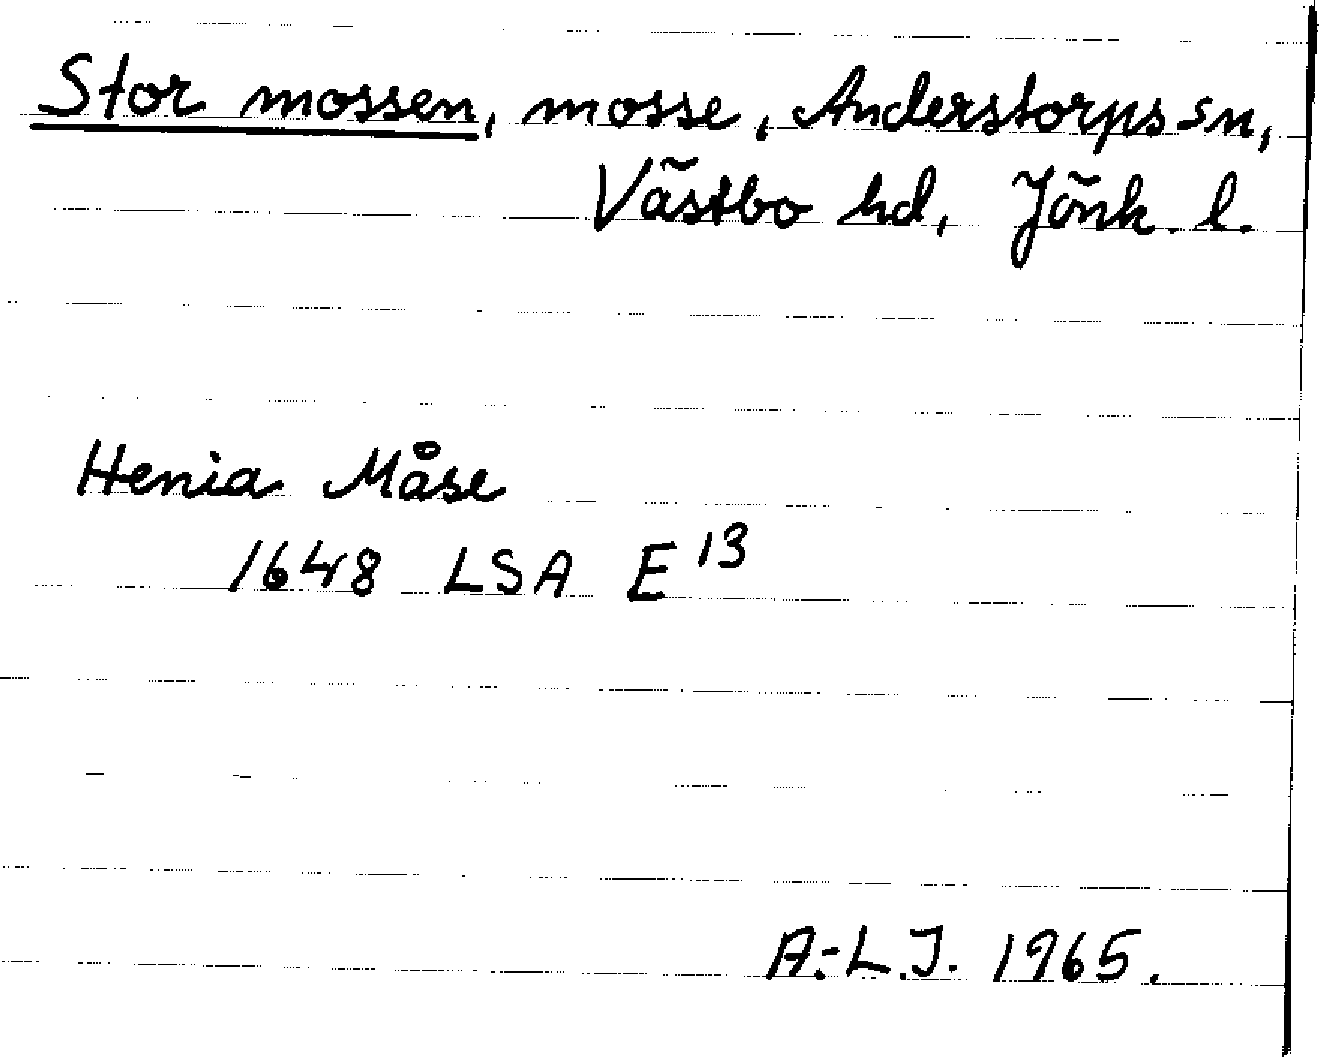 Stor mossen, mosse, Anderstorps sn,
Västbo hd, Jönk. l.
Henia Måse
1648 LSA E 13
A.-L.J. 1965.